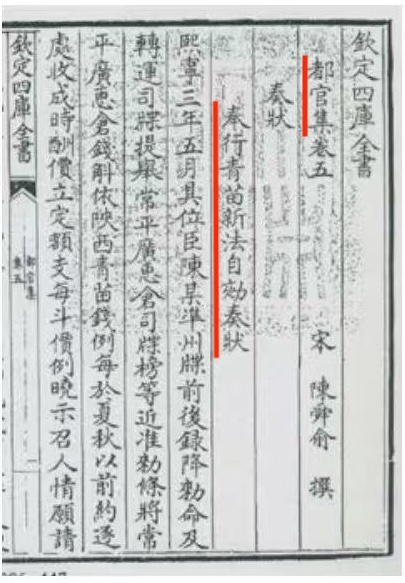 欽定四庫全書
都官集卷五
宋 陳舜俞 撰
奏狀
奉行青苗新法自劾奏狀
熙寧三年五月具位臣陳某準州牒前後録降勅命及
轉運司牒提舉常平廣惠倉司牒榜等近准勅條將常
平廣惠倉錢斛依陜西青苗錢例每於夏秋以前約逐
處收成時酬價立定預支每斗價例曉示召人情願請
欽定四庫全書
都官集
卷五